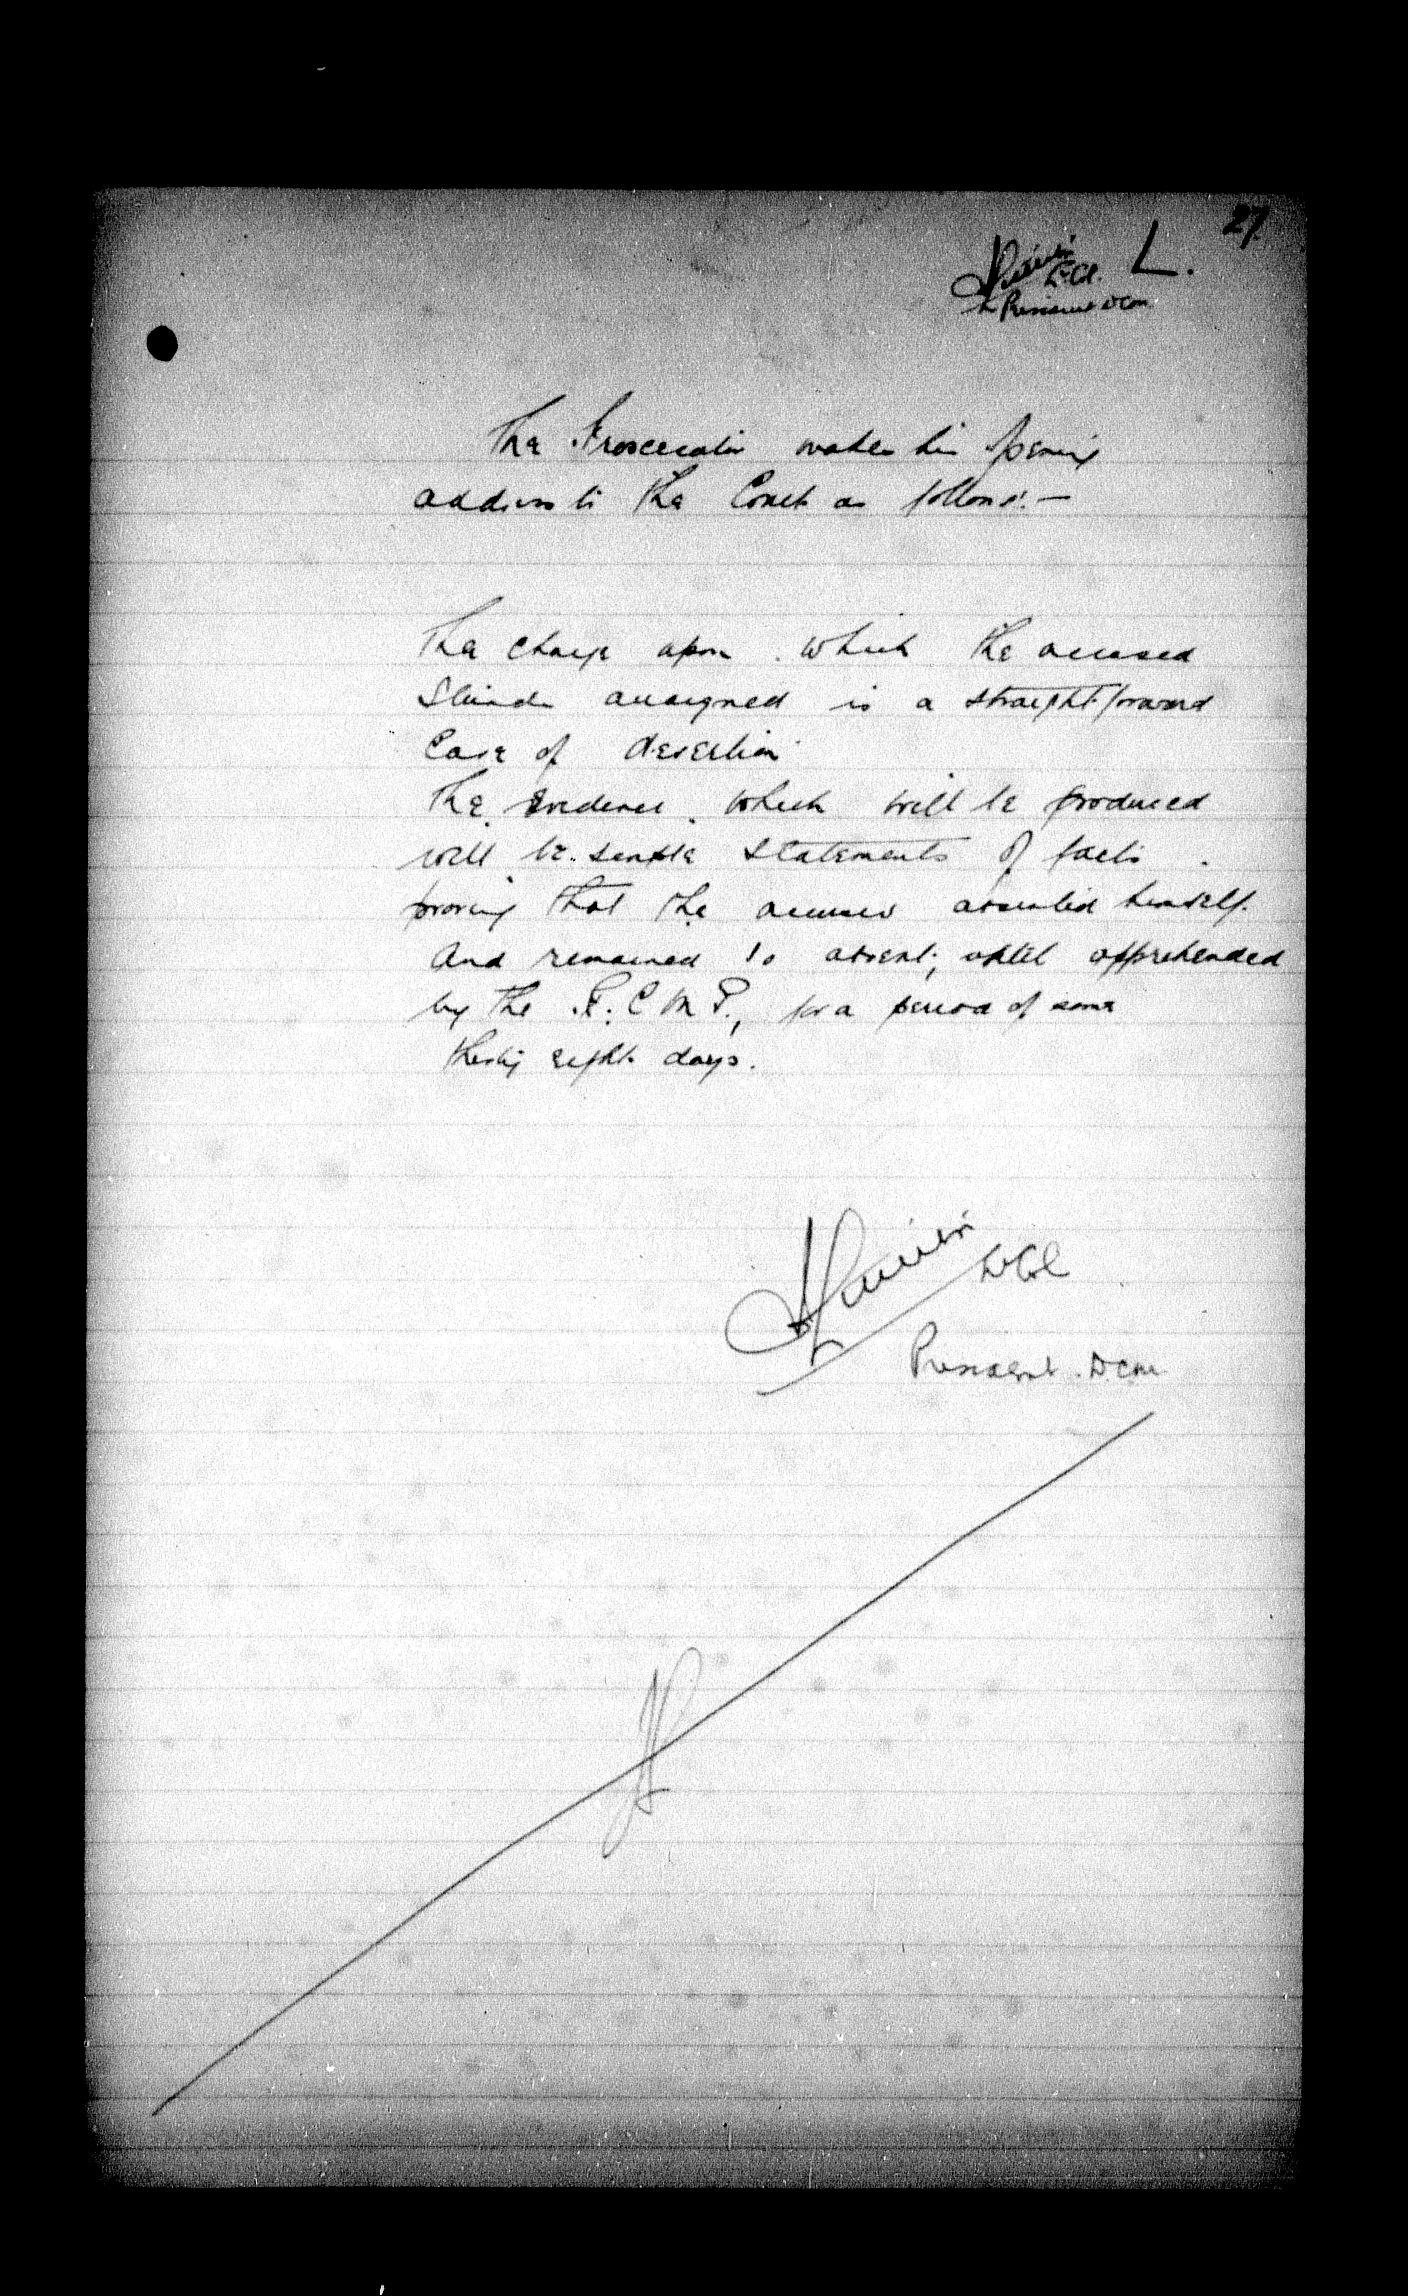 27.
L.
Lt. Col.
President DCM
The Prosecutor makes his opening
address to the Court as follows:—
The charge upon which the accused
stands arraigned is a straightforward
case of desertion.
The evidence which will be produced
will be simple statements of facts
proving that the accused absented himself
and remained so absent, until apprehended
by the R.C.M.P., for a period of some
thirty eight days.
Lt Col
President. DCM